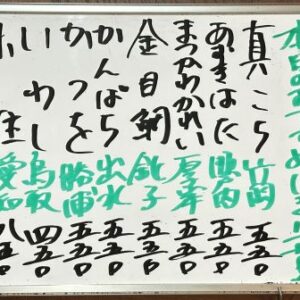 本日の
真こち 竹岡 五五〇
あずきはた 五五〇
まつかわかれい 厚岸 五五〇
金目鯛 銚子 五五〇
かんぱち 出水 五五〇
かつを 勝浦 五五〇
いわし 鳥取 四五〇
愛知 八五〇